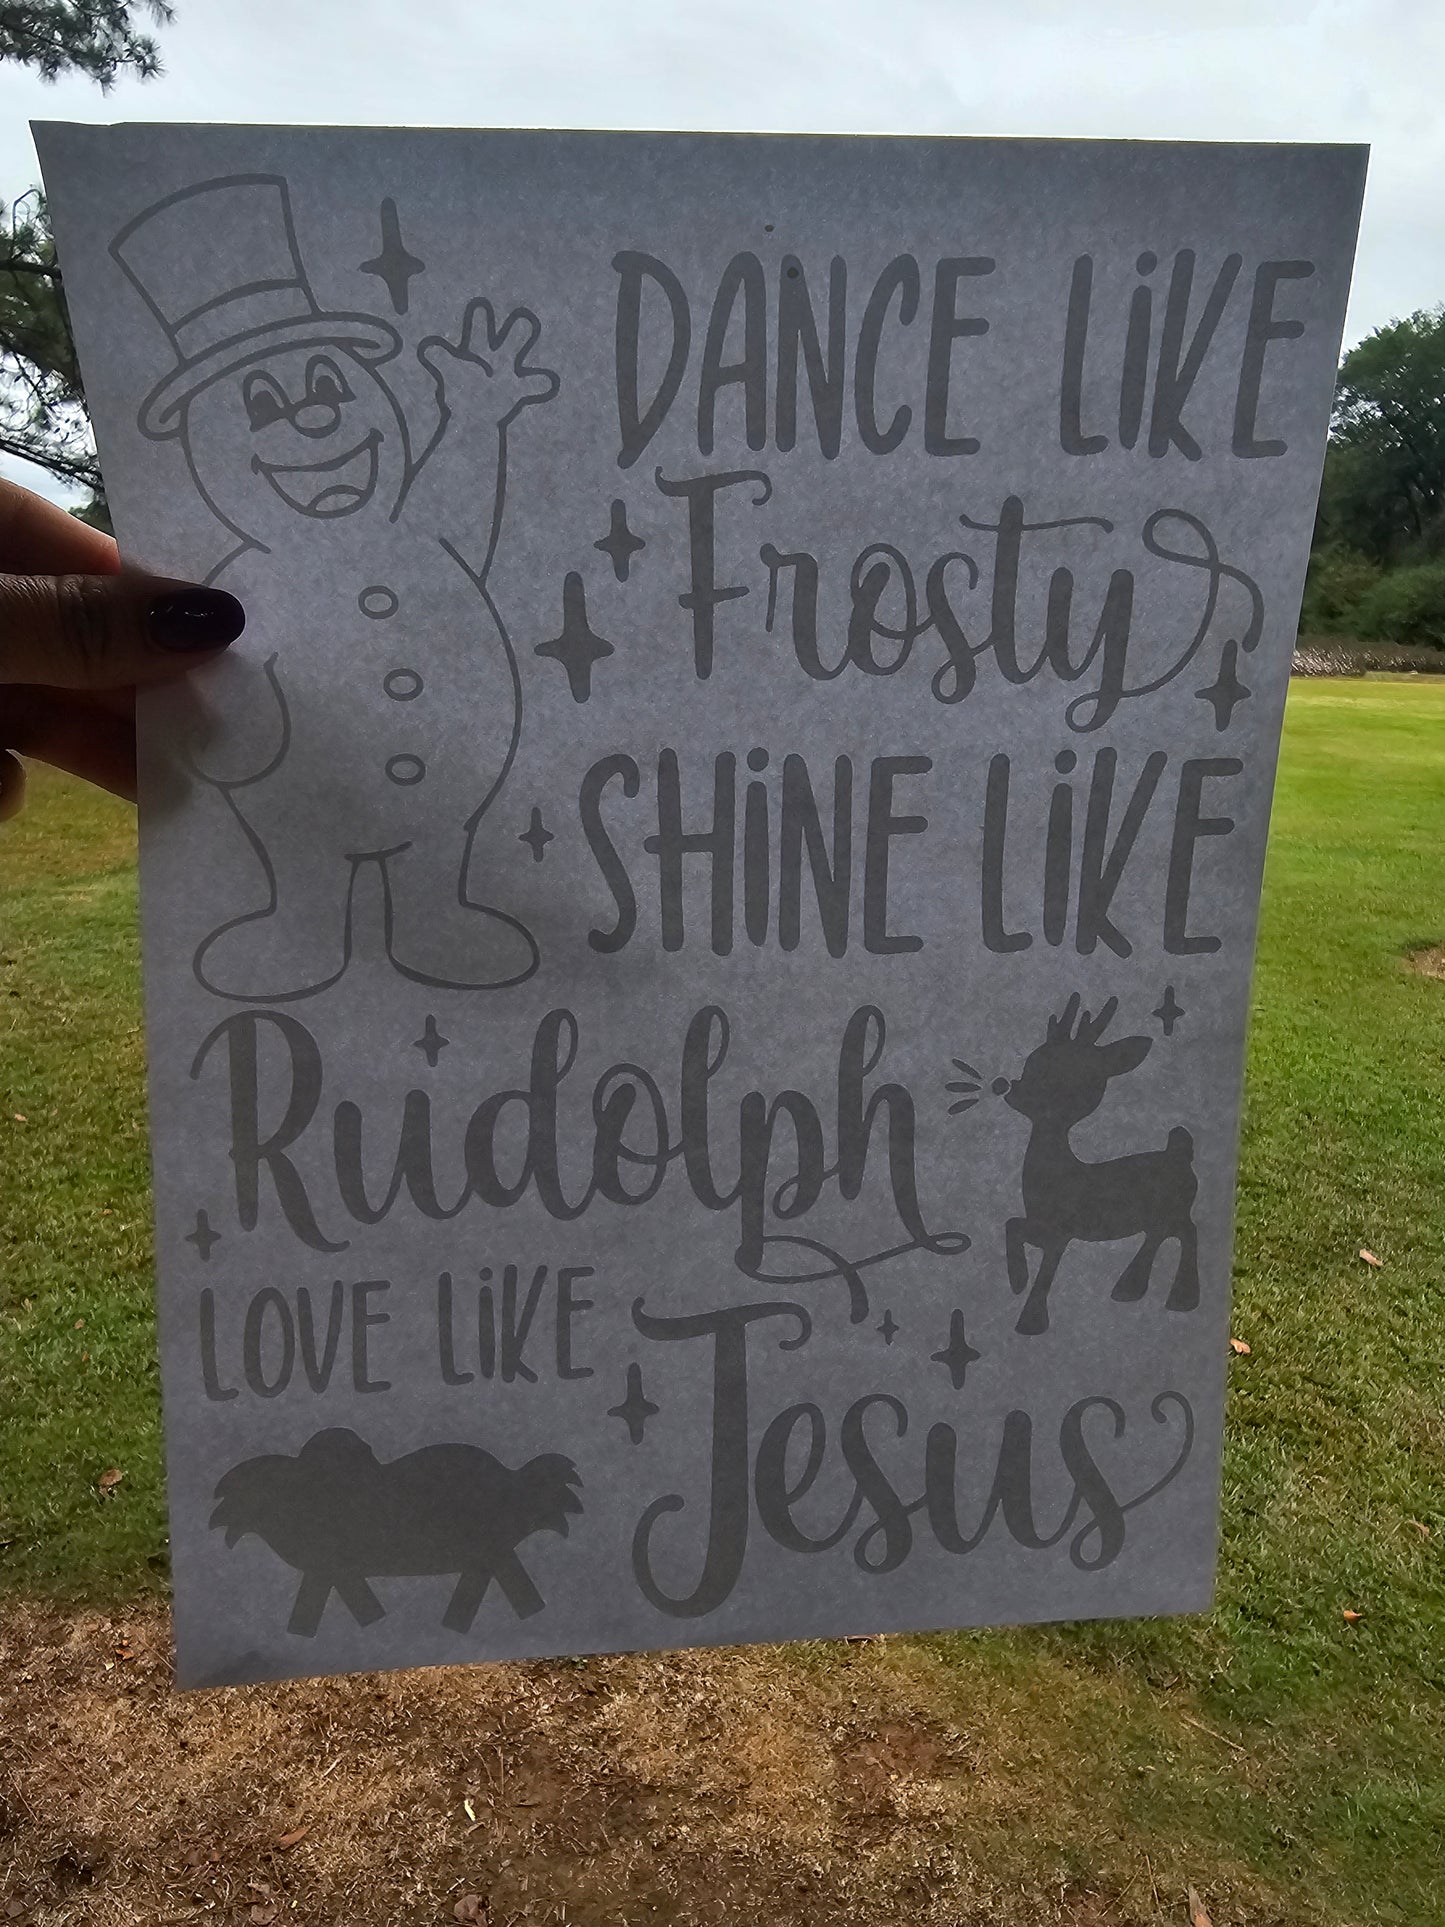 DANCE LiKE
Frosty
SHiNE LiKE
Rudolph
LOVE LiKE
Jesus